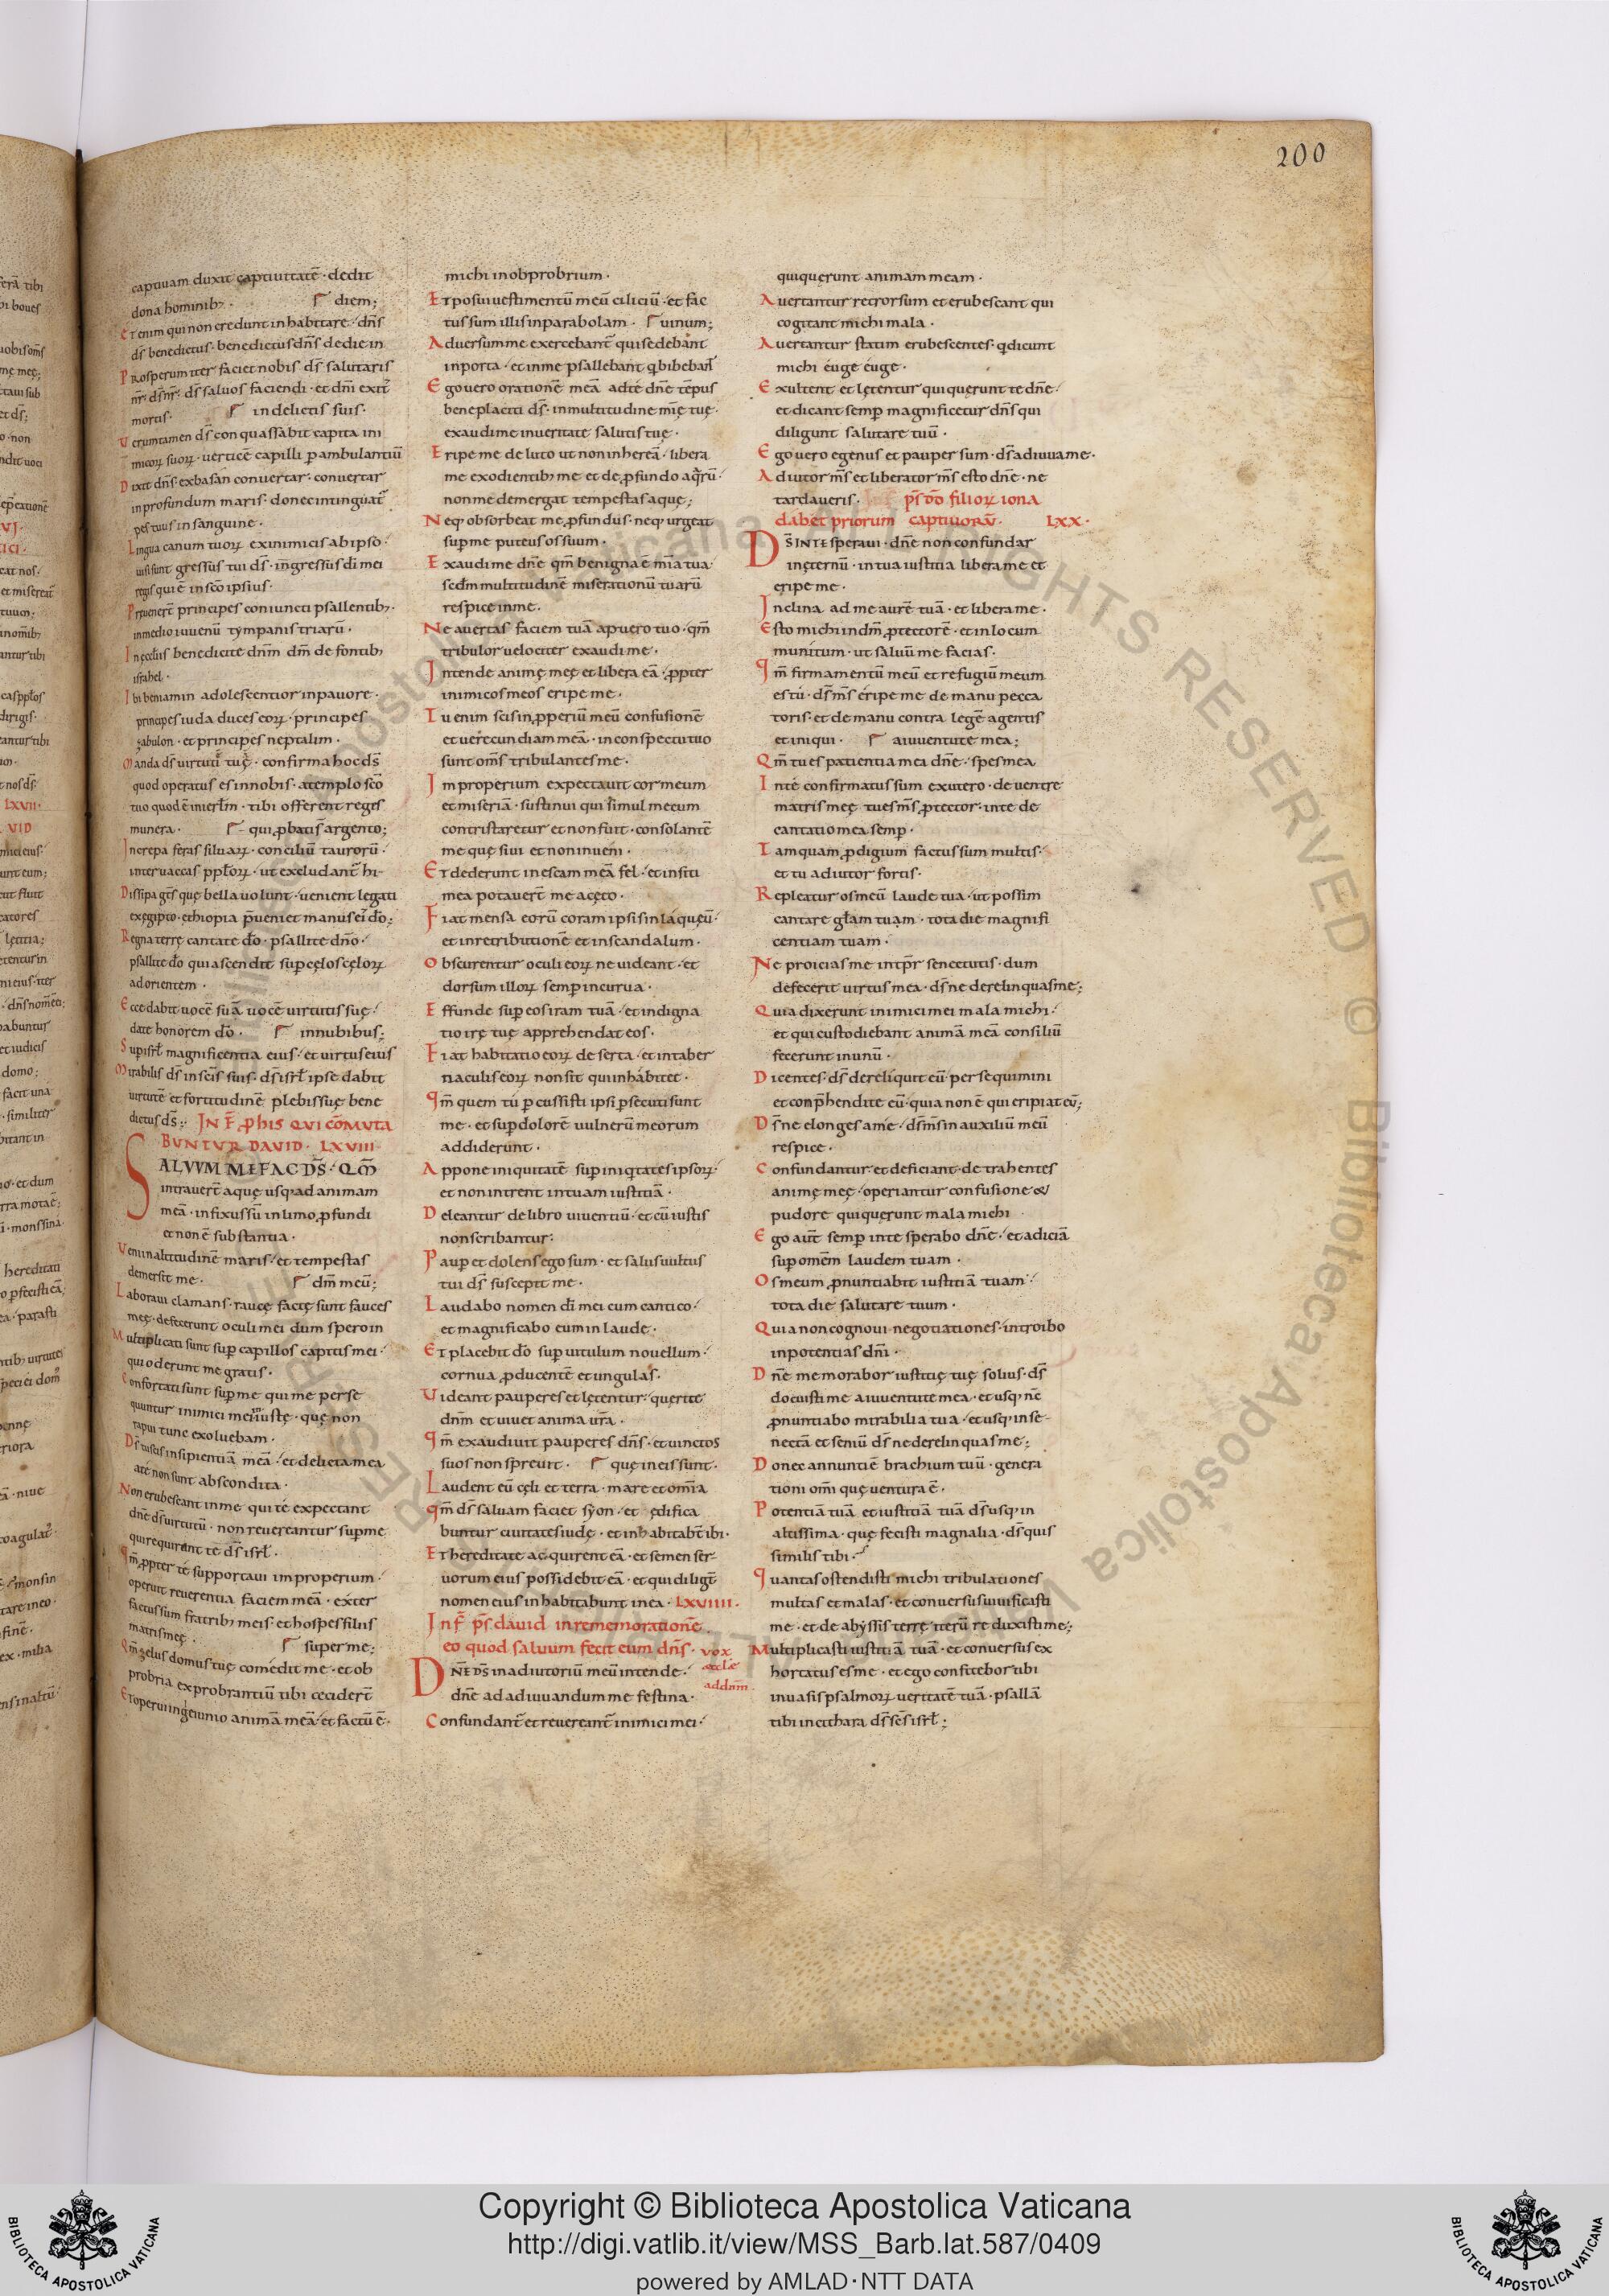 200
captiuam duxit captiuitatē · dedit
dona hominib; · diem;
Etenim qui non credunt inhabitare · dn̄s
ds̄ benedictus · benedictus dn̄s die in
Prosperum iter faciet nobis ds̄ salutaris
nr̄ · ds̄ nr̄ · ds̄ saluos faciendi · et dn̄i exit᷒
mortis · in delictis suis ·
Verumtamen ds̄ conquassabit capita ini
micoꝝ suoꝝ · uerticē capilli ꝑambulantiū
Dixit dn̄s · exbasan conuertar · conuertar
in profundum maris · donec intinguat᷒
pes tuus in sanguine ·
Lingua canum tuoꝝ ex inimicis ab ipso ·
uisi sunt gressus tui ds̄ · ingressus di mei
regis qui ē in sc̄o ipsius ·
Preuener̄t principes coniuncti psallentib; ·
in medio iuuenū tympanistriarū ·
In ęcclus benedicite dn̄m dm̄ de fontib;
israhel ·
Ibi beniamin adolescentior in pauore ·
principes iuda duces eoꝝ · principes
zabulon · et principes neptalim ·
Manda ds̄ uirtuti tuę · confirma hoc ds̄
quod operatus es in nobis · a templo sc̄o
tuo quod ē in ierl̄m · tibi offerent reges
munera · qui ꝓbati s̄ argento;
Increpa feras siluaꝝ · conciliū tauroꝝ ·
inter uaccas ppl̄oꝝ · ut excludant hi
Dissipa gt̄s quę bella uolunt · uenient legati
ex ęgipto · ethiopia p̄ueniet manus ei d̄o;
Regna terrę cantate d̄o · psallite dn̄o ·
psallite d̄o qui ascendit sup cęlos cęloꝝ
ad orientem ·
Ecce dabit uocē suā uocē uirtutis suę ·
date honorem d̄o · in nubibus;
Sup isrl̄ magnificentia eius · et uirtus eius
Mirabilis ds̄ in sc̄is suis · ds̄ isrl̄ ipse dabit
uirtutē et fortitudinē plebis suę bene
dictus ds̄; IN F̄ ꝓ his QUI CŌMUTA
BUNTUR DAVID · LXVIII
SALVUM ME FAC DS̄ · QM̄
intrauer̄t aquę usq; ad animam
meā · infixus sū in limo ꝓfundi
et non ē substantia ·
Veni in altitudinē maris · et tempestas
demersit me · dm̄ meū;
Laboraui clamans · raucę factę sunt fauces
męę · defecerunt oculi mei dum spero in
Multiplicati sunt sup capillos capitis mei ·
qui oderunt me gratis ·
Confortati sunt sup me qui me perse
quuntur inimici mei iniustę · quę non
rapui tunc exoluebam ·
Ds̄ tu scis insipientiā meā · et delicta mea
a te non sunt abscondita ·
Non erubescant in me qui te expectant
dn̄e ds̄ uirtutū · non reuereantur sup me
qui requirunt te ds̄ isrl̄ ·
Qm̄ ꝓpter te supportaui improperium ·
operuit reuerentia faciem meā · exter
factus sum fratrib; meis · et hospes filiis
matris męę · super me;
Qm̄ zelus domus tuę comedit me · et ob
probria exprobrantiū tibi cecider̄t
Et operui in ieiunio animā meā · et factū ē ·
michi in obprobrium ·
Et posui uestimentū meū ciliciū · et fac
tus sum illis in parabolam · uinum;
Aduersum me exercebant qui sedebant
in porta · et in me psallebant q bibebant
Ego uero orationē meā ad te dn̄e tēpus
beneplaciti ds̄ · in multitudine mīę tuę ·
exaudi me in ueritate salutis tuę ·
Eripe me de luto ut non inhereā · libera
me ex odientib; me et de ꝓfundo aq̄rū ·
non me demergat tempestas aquę;
Neq; obsorbeat me ꝓfundus · neq; urgeat
sup me puteus os suum ·
Exaudi me dn̄e qm̄ benigna ē mīa tua ·
scd̄m multitudinē miserationū tuarū
respice in me ·
Ne auertas faciem tuā a puero tuo · qm̄
tribulor uelociter exaudi me ·
Intende animę męę et libera eā · ꝓpter
inimicos meos eripe me ·
Tu enim scis inꝓperiū meū confusionē
et uerecundiam meā · in conspectu tuo
sunt om̄s tribulantes me ·
Improperium expectauit cor meum
et miseriā · sustinui qui simul mecum
contristaretur et non fuit · consolantē
me quęsiui et non inueni ·
Et dederunt in escam meā fel · et in siti
mea potauer̄t me aceto ·
Fiat mensa eorū coram ipsis in laqueū ·
et in retributionē et in scandalum ·
Obscurentur oculi eoꝝ ne uideant · et
dorsum illoꝝ semp incurua ·
Effunde sup eos iram tuā · et indigna
tio irę tuę apprehendat eos ·
Fiat habitatio eoꝝ deserta · et in taber
naculis eoꝝ non sit qui inhabitet ·
Qm̄ quem tu ꝑcussisti ipsi ꝑsecuti sunt
me · et sup dolorē uulnerū meorum
addiderunt ·
Appone iniquitatē sup iniqtates ipsoꝝ ·
et non intrent in tuam iustitiā ·
Deleantur de libro uiuentiū · et cū iustis
non scribantur:
Paup et dolens ego sum · et salus uultus
tui ds̄ suscepit me ·
Laudabo nomen di mei cum cantico ·
et magnificabo eum in laude ·
Et placebit d̄o sup uitulum nouellum ·
cornua ꝓducentē et ungulas ·
Videant pauperes et lętentur · querite
dn̄m et uiuet anima ur̄a ·
Qm̄ exaudiuit pauperes dn̄s · et uinctos
suos non spreuit · quę in eis sunt ·
Laudent eū cęli et terra · mare et om̄ia
qm̄ ds̄ saluam faciet syon · et ędifica
buntur ciuitates iudę · et inhabitabt̄ ibi ·
Et hereditate acquirent eā · et semen ser
uorum eius possidebit eā · et qui diligt̄
nomen eius inhabitabunt in ea · LXVIIII ·
In f̄ ps̄ dauid in rememorationē
eo quod saluum fecit eum dn̄s · vox
ecclæ
ad dnm̄ ·
DN̄E DS̄ in adiutoriū meū intende ·
dn̄e ad adiuuandum me festina ·
Confundant᷒ et reuereant᷒ inimici mei ·
qui quęrunt animam meam ·
Auertantur retrorsum et erubescant qui
cogitant michi mala ·
Auertantur statim erubescentes · q dicunt
michi euge euge ·
Exultent et lętentur qui quęrunt te dn̄e ·
et dicant semp magnificetur dn̄s qui
diligunt salutare tuū ·
Ego uero egenus et pauper sum · ds̄ adiuua me ·
Adiutor m̄s et liberator m̄s esto dn̄e · ne
tardaueris · ps̄ dd̄ filioꝝ iona
dabet priorum captiuorū · LXX ·
DS̄ IN TE speraui · dn̄e non confundar
in ęternū · in tua iustitia libera me et
eripe me ·
Inclina ad me aurē tuā · et libera me ·
Esto michi in dm̄ ꝓtectorē · et in locum
munitum · ut saluū me facias ·
Qm̄ firmamentū meū et refugiū meum
es tu · ds̄ m̄s eripe me de manu pecca
toris · et de manu contra legē agentis
et iniqui · a iuuentute mea;
Qm̄ tu es patientia mea dn̄e · spes mea
In te confirmatus sum ex utero · de uentre
matris męę tu es m̄s ꝓtector · in te de
cantatio mea semp ·
Tamquam ꝓdigium factus sum multis ·
et tu adiutor fortis ·
Repleatur os meū laude tua · ut possim
cantare gl̄am tuam · tota die magnifi
centiam tuam ·
Ne proicias me in tpr̄ senectutis · dum
defecerit uirtus mea · ds̄ ne derelinquas me;
Quia dixerunt inimici mei mala michi ·
et qui custodiebant animā meā consiliū
fecerunt in unū ·
Dicentes · ds̄ dereliquit eū · persequimini
et conp̄hendite eū · quia non ē qui eripiat eū;
Ds̄ ne elonges a me · ds̄ m̄s in auxiliū meū
respice ·
Confundantur et deficiant · detrahentes
animę męę · operiantur confusione &
pudore qui quęrunt mala michi
Ego aut̄ semp in te sperabo dn̄e · et adiciā
sup omēm laudem tuam ·
Os meum ꝓnuntiabit iustitiā tuam ·
tota die salutare tuum ·
Quia non cognoui negotiationes · introibo
in potentias dn̄i ·
Dn̄e memorabor iustitię tuę solius · ds̄
docuisti me a iuuentute mea · et usq; nc̄
ꝓnuntiabo mirabilia tua · et usq; in se
nectā et seniū ds̄ ne derelinquas me;
Donec annuntiē brachium tuū · genera
tioni om̄i quę uentura ē ·
Potentiā tuā et iustitiā tuā ds̄ usq; in
altissima · quę fecisti magnalia · ds̄ quis
similis tibi ·
Quantas ostendisti michi tribulationes
multas et malas · et conuersus uiuificasti
me · et de abyssis terrę iterū reduxisti me;
Multiplicasti iustitiā tuā · et conuersus ex
hortatus es me · et ego confitebor tibi
in uasis psalmoꝝ ueritatē tuā · psallā
tibi in cithara ds̄ sc̄s isrl̄;
Copyright © Biblioteca Apostolica Vaticana
http://digi.vatlib.it/view/MSS_Barb.lat.587/0409
powered by AMLAD·NTT DATA
BIBLIOTECA APOSTOLICA VATICANA
BIBLIOTECA APOSTOLICA VATICANA